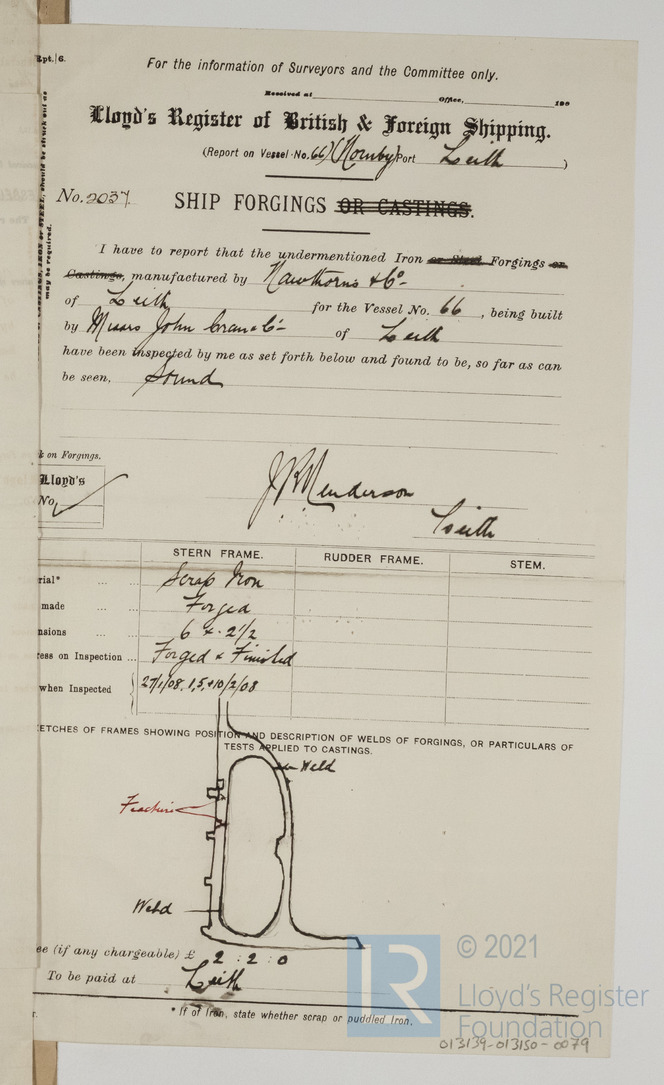 Rpt. 6.
For the information of Surveyors and the Committee only.
Received at Office, 190
Lloyd's Register of British & Foreign Shipping.
(Report on Vessel No. 66) (Hornby) Port Leith )
No. 2037 SHIP FORGINGS OR CASTINGS.
CASTINGS, IRON or STEEL, should be struck out as
may be required.
I have to report that the undermentioned Iron or Steel Forgings or
Castings, manufactured by Hawthorns & Co
of Leith for the Vessel No. 66, being built
by Messrs John Cran & Co of Leith
have been inspected by me as set forth below and found to be, so far as can
be seen, Sound
on Forgings.
Lloyd's
No.
Henderson
Leith
STERN FRAME. RUDDER FRAME. STEM.
rial* ... ... Scrap Iron
made ... ... Forged
nsions ... ... 6 x 2 1/2
ress on Inspection ... Forged & Finished
when Inspected 27/1/08, 1, 5, & 10/2/08
ETCHES OF FRAMES SHOWING POSITION AND DESCRIPTION OF WELDS OF FORGINGS, OR PARTICULARS OF
TESTS APPLIED TO CASTINGS.
Weld
Weld
ee (if any chargeable) £ 2 : 2 : 0
To be paid at Leith
r. * If of Iron, state whether scrap or puddled Iron.
LR © 2021
Lloyd's Register
Foundation
013139-013150-0079